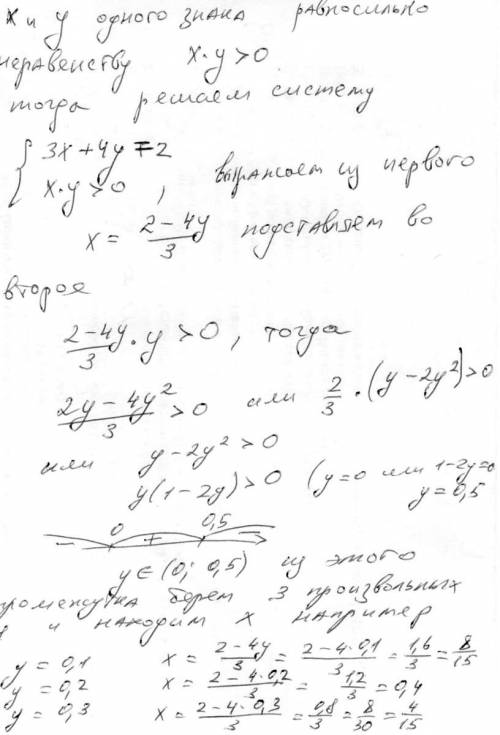 x и y одного знака равносильно
неравенству x·y>0
тогда решаем систему
{ 3x+4y=2
x·y>0 , выражаем из первого
x = (2-4y)/3 подставляем во
второе
(2-4y)/3 · y > 0 , тогда
(2y-4y²)/3 > 0 или 2/3 · (y-2y²)>0
или y-2y²>0
y(1-2y)>0 (y=0 или 1-2y=0
y=0,5
0 0,5
- + -
y∈(0; 0,5) из этого
промежутка берем 3 произвольных
и находим x например
y = 0,1 x = (2-4y)/3 = (2-4·0,1)/3 = 1,6/3 = 8/15
y = 0,2 x = (2-4·0,2)/3 = 1,2/3 = 0,4
y = 0,3 x = (2-4·0,3)/3 = 0,8/3 = 8/30 = 4/15